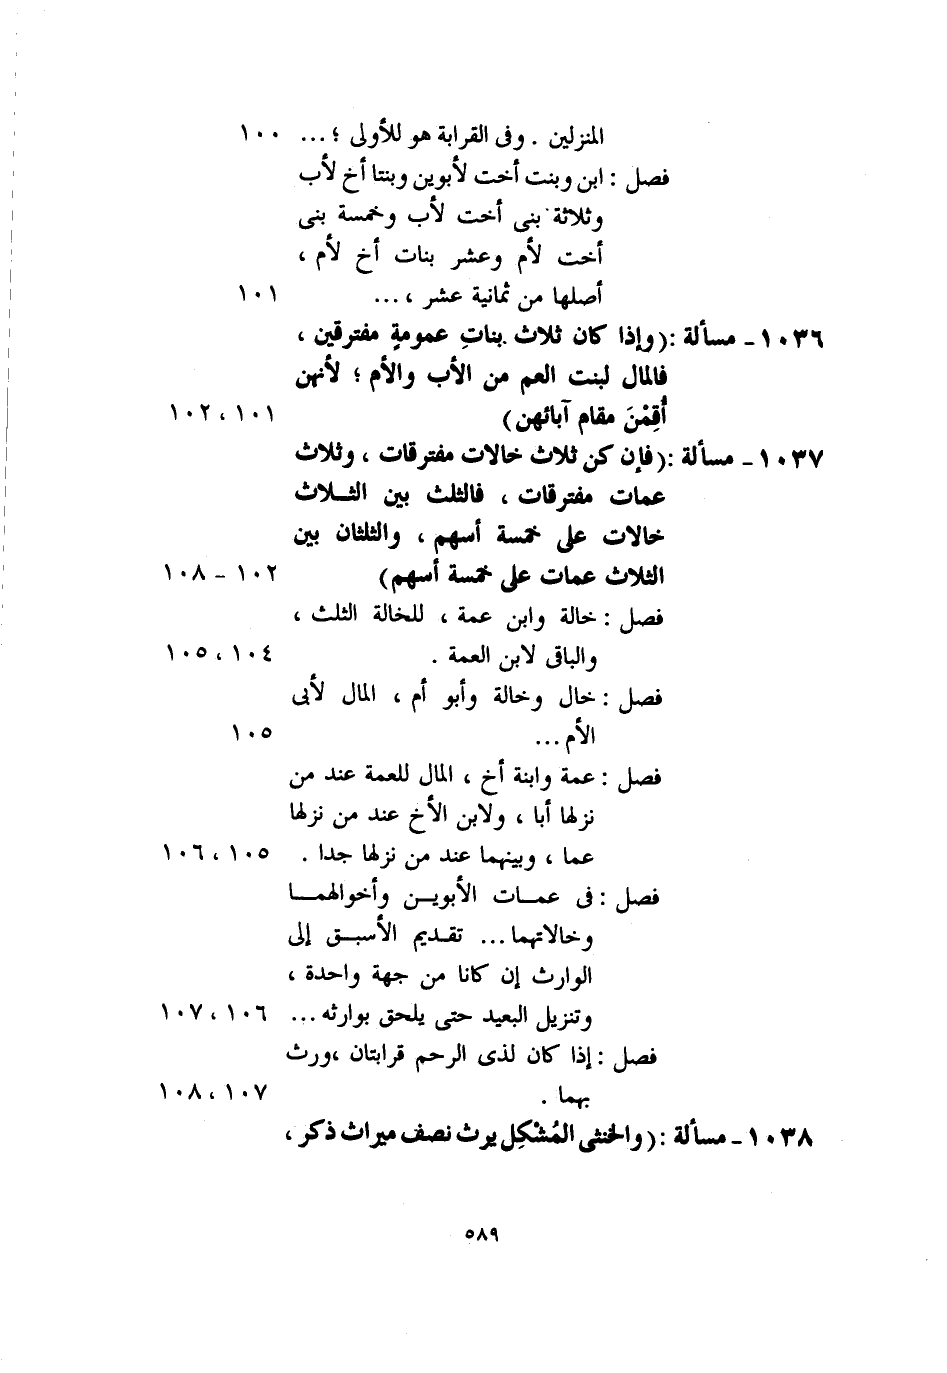 المنزلين . وفى القرابة هو للأولى ؛ ... ١٠٠
فصل : ابن وبنت أخت لأبوين وبنتا أخ لأب
وثلاثة بنى أخت لأب وخمسة بنى
أخت لأم وعشر بنات أخ لأم ،
أصلها من ثمانية عشر ، ... ١٠١
١٠٣٦ - مسألة : (وإذا كان ثلاث بناتِ عمومةٍ مفترقين ،
فالمال لبنت العم من الأب والأم ؛ لأنهن
أُقِمْنَ مقام آبائهن) ١٠١ ، ١٠٢
١٠٣٧ - مسألة : (فإن كن ثلاث خالات مفترقات ، وثلاث
عمات مفترقات ، فالثلث بين الثلاث
خالات على خمسة أسهم ، والثلثان بين
الثلاث عمات على خمسة أسهم) ١٠٢ - ١٠٨
فصل : خالة وابن عمة ، للخالة الثلث ،
والباقى لابن العمة . ١٠٤ ، ١٠٥
فصل : خال وخالة وأبو أم ، المال لأبى
الأم ... ١٠٥
فصل : عمة وابنة أخ ، المال للعمة عند من
نزلها أبا ، ولابن الأخ عند من نزلها
عما ، وبينهما عند من نزلها جدا . ١٠٥ ، ١٠٦
فصل : فى عمات الأبوين وأخوالهما
وخالاتهما ... تقديم الأسبق إلى
الوارث إن كانا من جهة واحدة ،
وتنزيل البعيد حتى يلحق بوارثه ... ١٠٦ ، ١٠٧
فصل : إذا كان لذى الرحم قرابتان ، ورث
بهما . ١٠٧ ، ١٠٨
١٠٣٨ - مسألة : (والخنثى المُشْكِل يرث نصف ميراث ذكر ،
٥٨٩